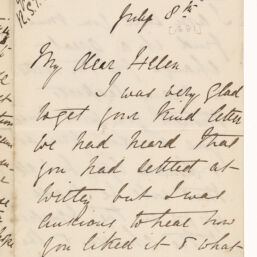 July 8th
My dear Helen
I was very glad
to get your kind letter
we had heard that
you had settled at
Witley but I was
anxious to hear how
you liked it & what